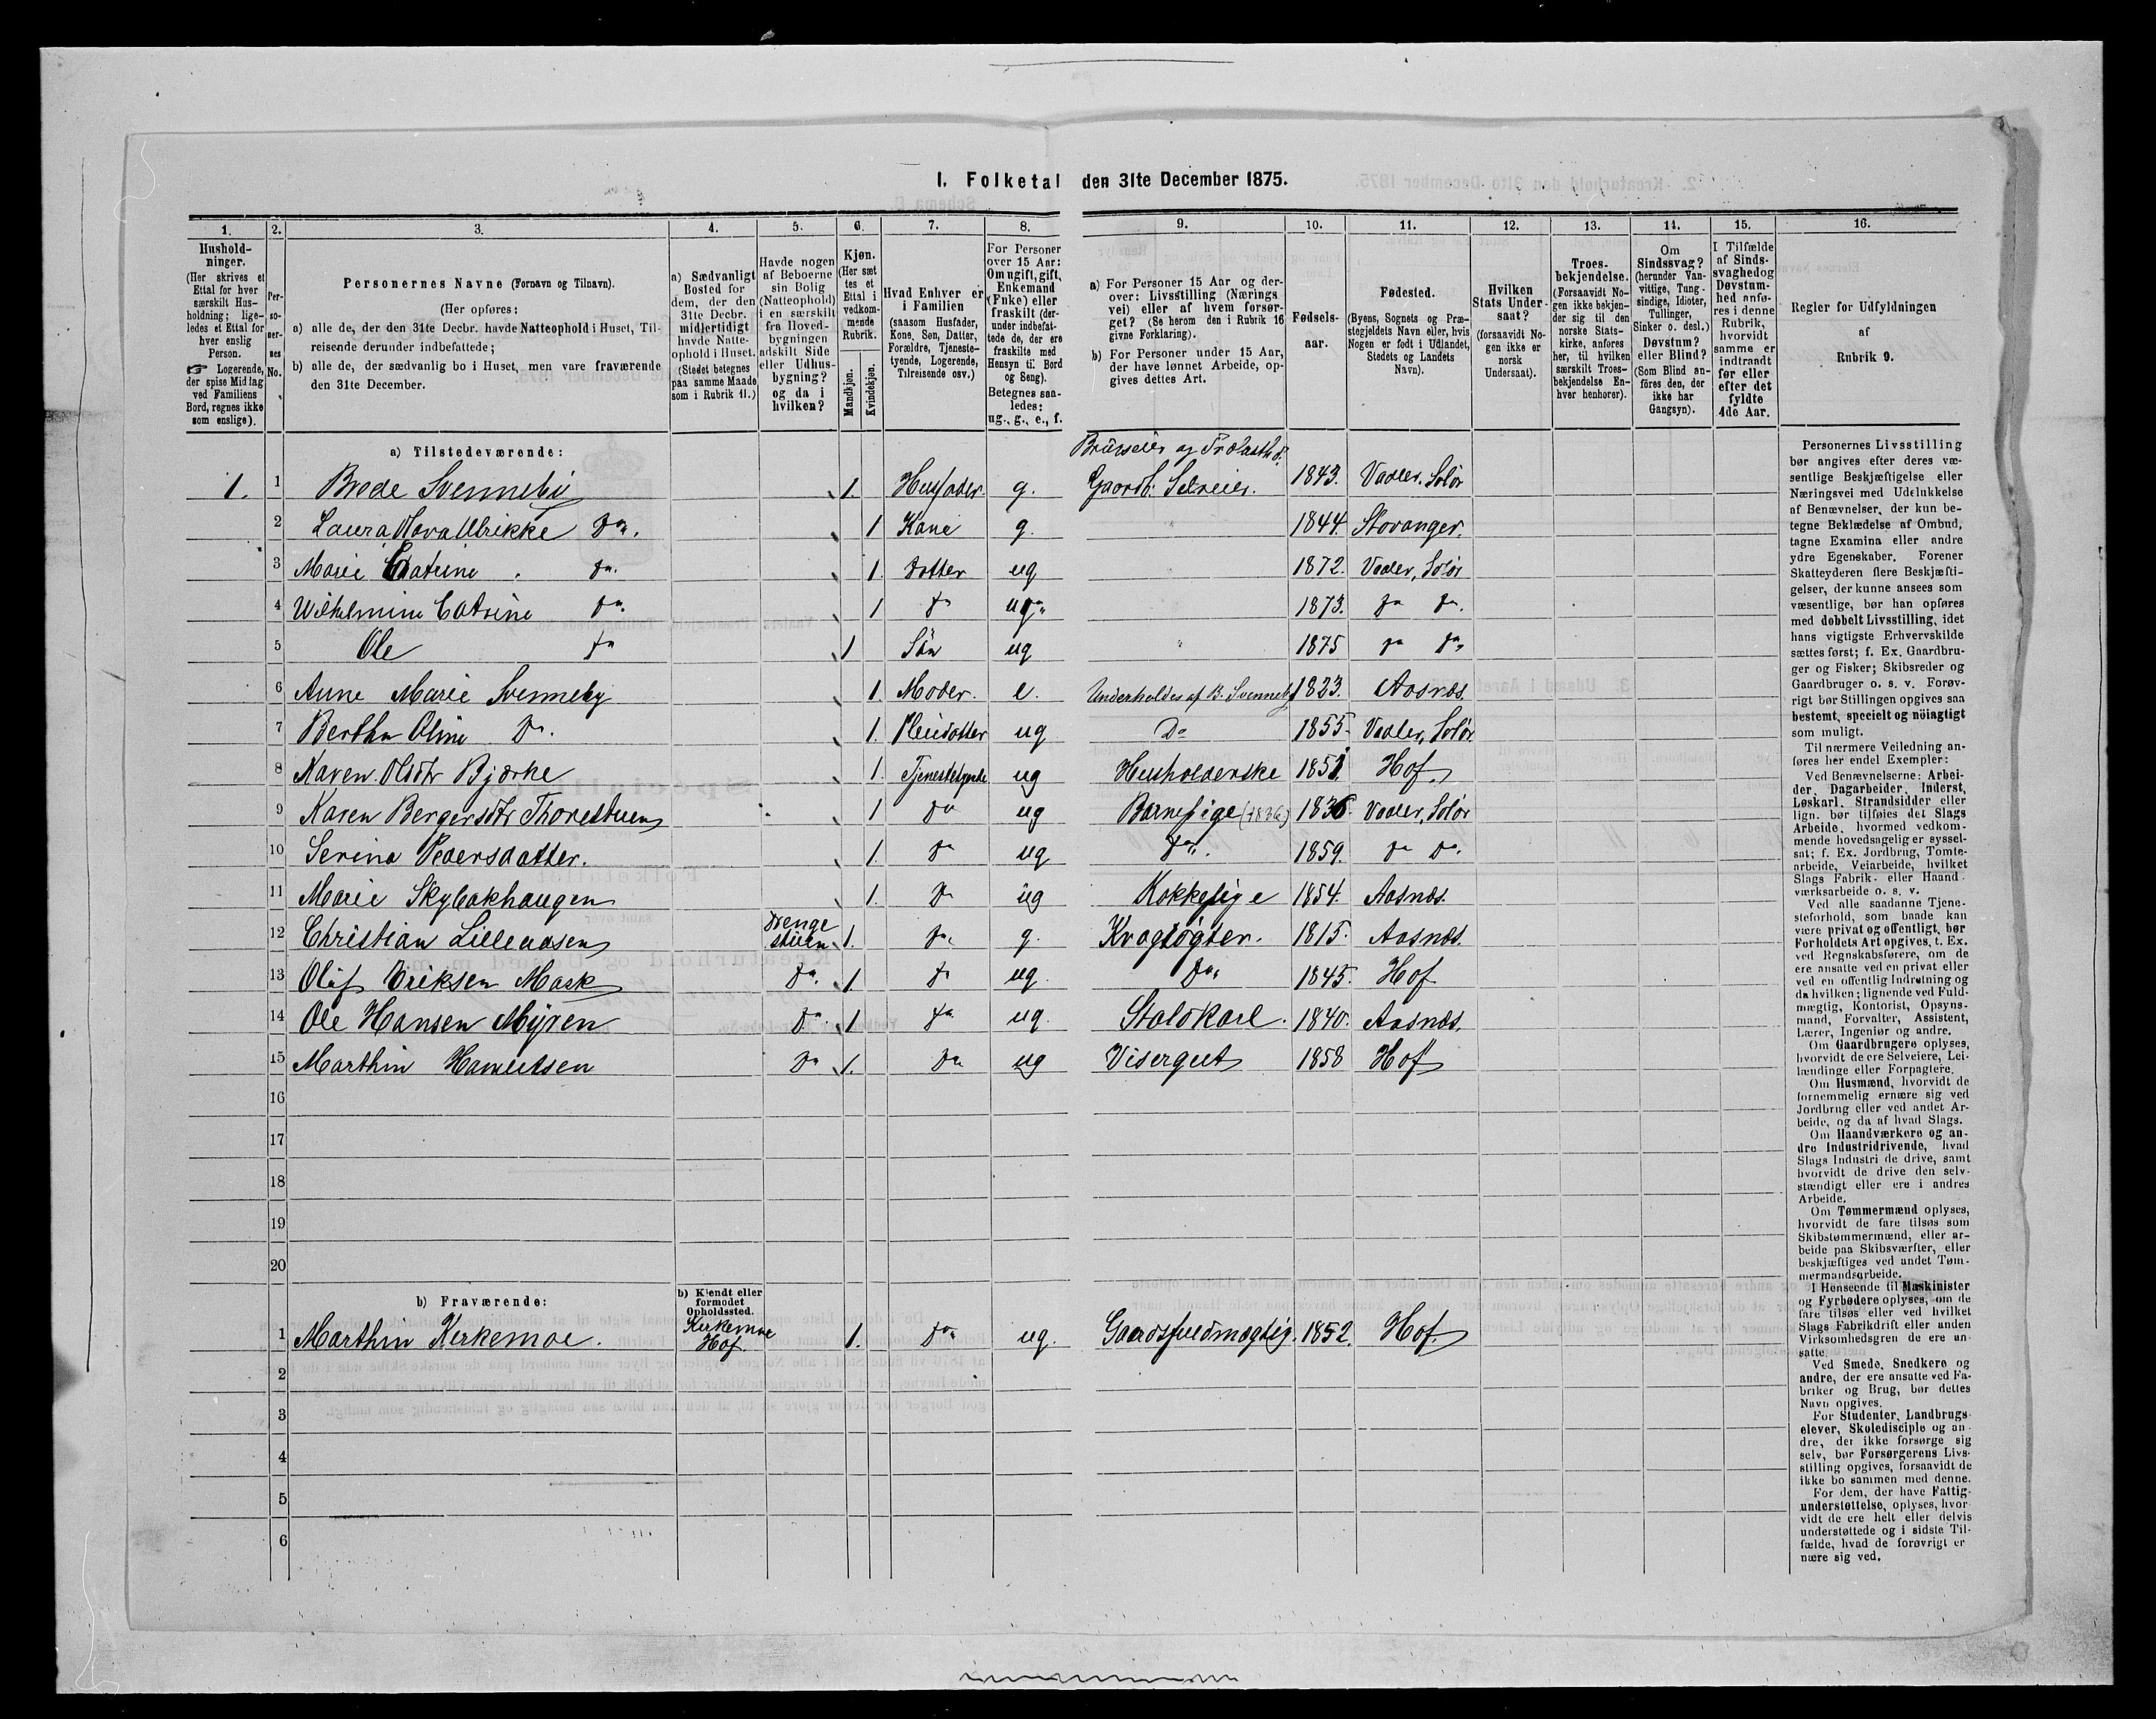 I. Folketal den 31te December 1875.
1. 2. 3. 4. 5. 6. 7. 8. 9. 10. 11. 12. 13. 14. 15. 16.
Hushold-
ninger.
(Her skrives et
Ettal for hver
særskilt Hus-
holdning; lige-
ledes et Ettal for
hver enslig
Person.
☞ Logerende,
der spise Middag
ved Familiens
Bord, regnes ikke
som enslige).
Per-
so-
ner-
nes
No.
Personernes Navne (Fornavn og Tilnavn).
(Her opføres:
a) alle de, der den 31te Decbr. havde Natteophold i Huset, Til-
reisende derunder indbefattede;
b) alle de, der sædvanlig bo i Huset, men vare fraværende
den 31te December.
a) Sædvanligt
Bosted for
dem, der den
31te Decbr.
midlertidigt
havde Natte-
ophold i Huset.
(Stedet betegnes
paa samme Maade
som i Rubrik 11.)
Havde nogen
af Beboerne
sin Bolig
(Natteophold)
i en særskilt
fra Hoved-
bygningen
adskilt Side
eller Udhus-
bygning?
og da i
hvilken?
Kjøn.
(Her sæt
tes et
Ettal i
vedkom-
mende
Rubrik.
Mandkjøn.
Kvindekjøn.
Hvad Enhver er
i Familien
(saasom Husfader,
Kone, Søn, Datter,
Forældre, Tjeneste-
tyende, Logerende,
Tilreisende osv.)
For Personer
over 15 Aar:
Om ugift, gift,
Enkemand
(Enke) eller
fraskilt (der-
under indbefat-
tede de, der ere
fraskilte med
Hensyn til Bord
og Seng).
Betegnes saa-
ledes:
ug., g., e., f.
a) For Personer 15 Aar og der-
over: Livsstilling (Nærings
vei) eller af hvem forsør-
get? (Se herom den i Rubrik 16
givne Forklaring).
b) For Personer under 15 Aar,
der have lønnet Arbeide, op-
gives dettes Art.
Fødsels-
aar.
Fødested.
(Byens, Sognets og Præ-
stegjeldets Navn eller, hvis
Nogen er født i Udlandet,
Stedets og Landets
Navn).
Hvilken
Stats Under-
saat?
(forsaavidt No-
gen ikke er
norsk
Undersaat).
Troes-
bekjendelse.
(Forsaavidt No-
gen ikke bekjen-
der sig til den
norske Stats-
kirke, anføres
her, til hvilken
særskilt Troes-
bekjendelse En-
hver henhører).
Om
Sindssvag?
(herunder Van-
vittige, Tung-
sindige, Idioter,
Tullinger,
Sinker o. desl.)
Døvstum?
eller Blind?
(Som Blind an-
føres den, der
ikke har
Gangsyn).
I Tilfælde
af Sinds-
svaghed og
Døvstum-
hed anfø-
res i denne
Rubrik,
hvorvidt
samme er
indtraadt
før eller
efter det
fyldte
4de Aar.
Regler for Udfyldningen
af
Rubrik 9.
a) Tilstedeværende:
1. 1 Brede Svenneby 1. Husfader. g. Gaardb. Selveier. 1843. Vaaler, Solør
2 Laura Ulrikke Do. 1 Kone g. 1844. Stavanger.
3 Marie Catrine Do. 1. Datter ug 1872. Vaaler, Solør
4 Wilhelmine Catrine Do. 1 Do ug 1873. Do Do.
5 Ole Do 1 Søn ug 1875 Do Do.
6 Anne Marie Svenneby 1. Moder. e. Underholdes af B. Svenneby 1823. Aasnæs.
7 Bertha Oline Do. 1. Pleiedatter ug Do 1855. Vaaler, Solør.
8 Karen Olsdtr Bjørke 1. Tjenestetyende ug Husholderske 1851. Hof.
9 Karen Bergersdtr Thorestuen 1 Do ug Barnepige (1836) 1836. Vaaler, Solør
10 Serina Pedersdatter. 1. Do ug Do. 1859. Do Do.
11 Marie Skybakhaugen 1. Do ug Kokkepige 1854. Aasnæs.
12 Christian Lilleaasen Drengestuen 1. Do. g. Kragtøgter. 1815. Aasnæs.
13 Oluf Eriksen Mask Do. 1. Do ug. Do. 1845. Hof
14 Ole Hansen Myren Do. 1 Do ug. Staldkarl. 1840. Aasnæs.
15 Marthin Do 1. Do ug Visergut 1858 Hof
16
17
18
19
20
b) Fraværende:
b) Kjendt eller
formodet
Opholdssted.
1 Marthin Kirkemoe. Kirkemoe Hof. 1. Do. ug. Gaardsfuldmægtig. 1852. Hof.
2
3
4
5
6
Personernes Livsstilling
bør angives efter deres væ-
sentlige Beskjæftigelse eller
Næringsvei med Udelukkelse
af Benævnelser, der kun be-
tegne Beklædelse af Ombud,
tagne Examina eller andre
ydre Egenskaber. Forener
Skatteyderen flere Beskjæfti-
gelser, der kunne ansees som
væsentlige, bør han opføres
med dobbelt Livsstilling, idet
hans vigtigste Erhvervskilde
sættes først; f. Ex. Gaardbru-
ger og Fisker; Skibsreder og
Gaardbruger o. s. v. Forøv-
rigt bør Stillingen opgives saa
bestemt, specielt og nöiagtigt
som muligt.
Til nærmere Veiledning an-
føres her endel Exempler:
Ved Benævnelserne: Arbei-
der, Dagarbeider, Inderst,
Løskarl, Strandsidder eller
lign. bør tilføies det Slags
Arbeide, hvormed vedkom-
mende hovedsagelig er syssel-
sat; f. Ex. Jordbrug, Tomte-
arbeide, Veiarbeide, hvilket
Slags Fabrik- eller Haand-
værksarbeide o. s. v.
Ved alle saadanne Tjene-
steforhold, som baade kan
være privat og offentligt, bør
Forholdets Art opgives, t. Ex.
ved Regnskabsførere, om de
ere ansatte ved en privat eller
ved en offentlig Indretning og
da hvilken; lignende ved Fuld-
mægtig, Kontorist, Opsyns-
mand, Forvalter, Assistent,
Lærer, Ingeniør og andre.
Om Gaardbrugere oplyses,
hvorvidt de ere Selveiere, Lei-
lændinge eller Forpagtere.
Om Husmænd, hvorvidt de
fornemmelig ernære sig ved
Jordbrug eller ved andet Ar-
beide, og da af hvad Slags.
Om Haandværkere og an-
dre Industridrivende, hvad
Slags Industri de drive, samt
hvorvidt de drive den selv-
stændigt eller ere i andres
Arbeide.
Om Tømmermænd oplyses,
hvorvidt de fare tilsøs som
Skibstømmermænd, eller ar-
beide paa Skibsværfter, eller
beskjæftiges ved andet Tøm-
mermandsarbeide.
I Henseende til Maskinister
og Fyrbødere oplyses, om de
fare tilsøs eller ved hvilket
Slags Fabrikdrift eller anden
Virksomhedsgren de ere an-
satte.
Ved Smede, Snedkere og
andre, der ere ansatte ved Fa-
briker og Brug, bør dettes
Navn opgives.
For Studenter, Landbrugs-
elever, Skoledisciple og an-
dre, der ikke forsørge sig
selv, bør Forsørgerens Livs-
stilling opgives, forsaavidt de
ikke bo sammen med denne.
For dem, der have Fattig-
understøttelse, oplyses, hvor-
vidt de ere helt eller delvis
understøttede og i sidste Til-
fælde, hvad de forøvrigt er
nære sig ved.